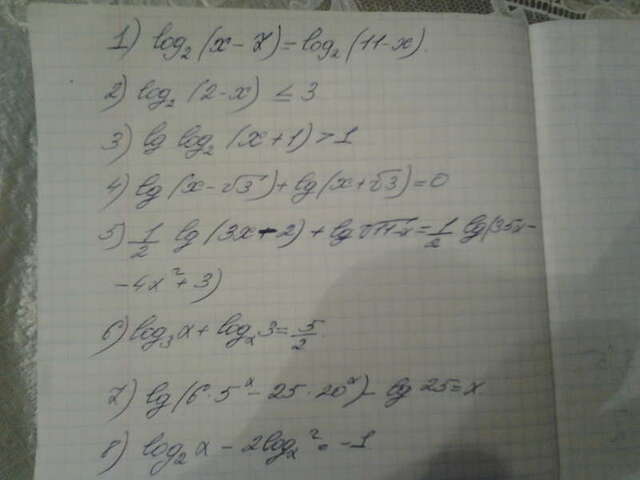 1) log₂(x-7)=log₂(11-x).
2) log₂(2-x) ≤ 3
3) lg log₂(x+1)>1
4) lg(x-√3)+lg(x+√3)=0
5) 1/2 lg(3x-2)+lg√11-x=1/2 lg(35x-
-4x²+3)
6) log₃x+logₓ3=5/2.
7) lg(6·5ˣ-25·20ˣ)-lg25=x
8) log₂x-2logₓ2=-1